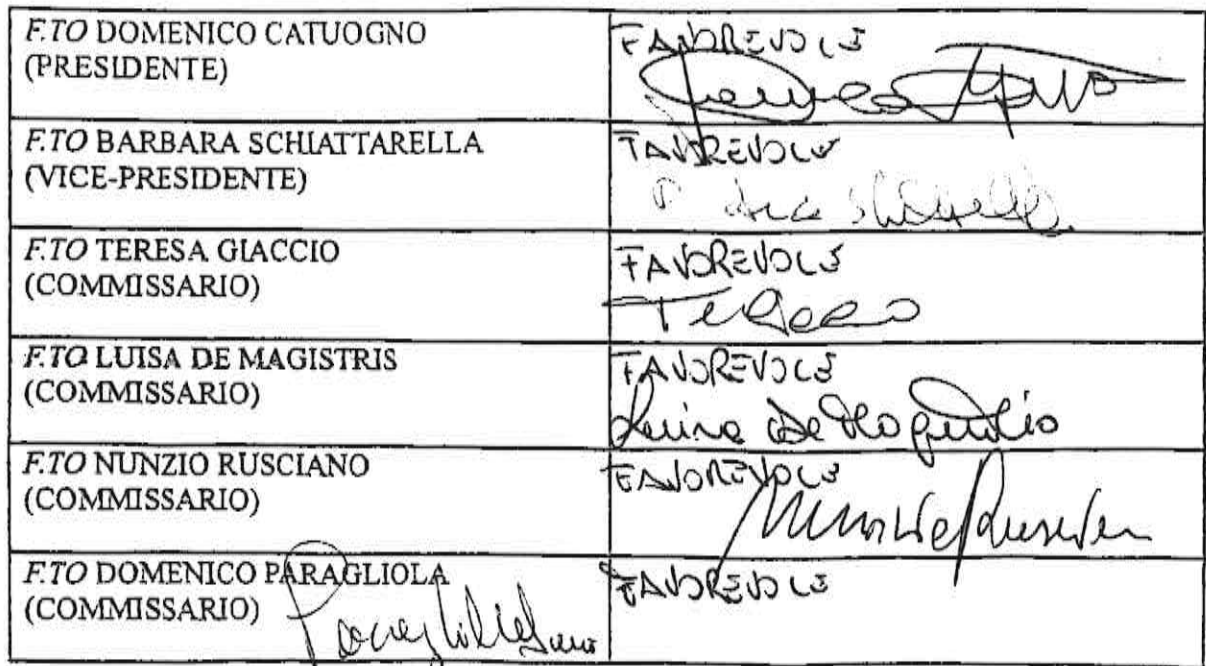 F.TO DOMENICO CATUOGNO
(PRESIDENTE)
FAVOREVOLE
F.TO BARBARA SCHIATTARELLA
(VICE-PRESIDENTE)
FAVOREVOLE
F.TO TERESA GIACCIO
(COMMISSARIO)
FAVOREVOLE
F.TO LUISA DE MAGISTRIS
(COMMISSARIO)
FAVOREVOLE
Luisa De Magistris
F.TO NUNZIO RUSCIANO
(COMMISSARIO)
FAVOREVOLE
Nunzio Rusciano
F.TO DOMENICO PARAGLIOLA
(COMMISSARIO)
FAVOREVOLE